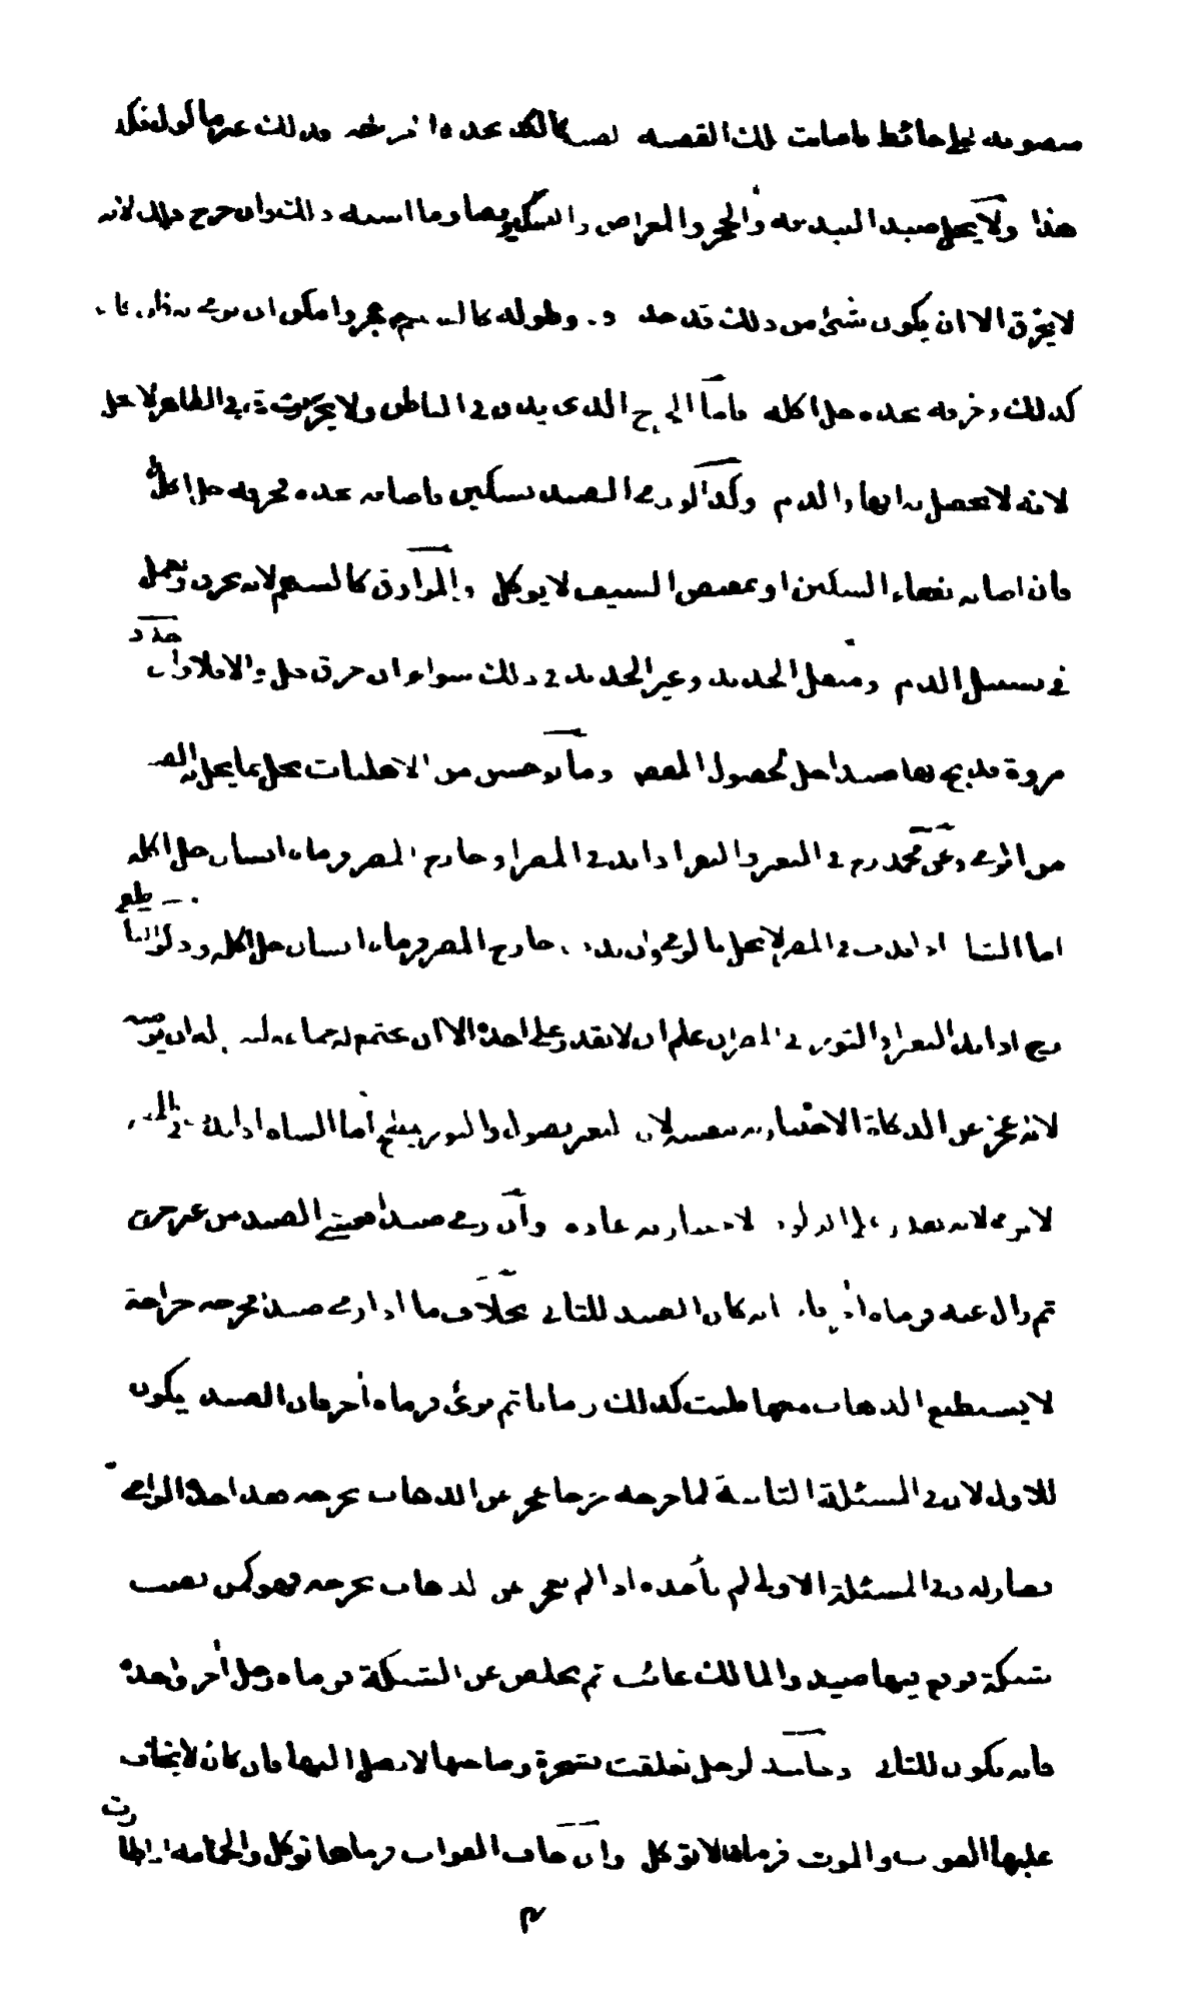 منصوبة على حائط فاصابت تلك القصبة الصيد بحده وذلك غير مأكول فكذا
هذا ولا يحل صيد البندقة والحجر والمعراض والعصا وما اشبه ذلك وان جرح ذلك لانه
لا يخرق الا ان يكون شئ من ذلك قد حدد وطوله كالسهم وامكن ان يرمى به فان كان
كذلك وخرقه بحده حل اكله فاما الجرح الذى يدق فى الباطن ولا يخرق فى الظاهر لا يحل
لانه لا يحصل به انهار الدم وكذا لو رمى الصيد بسكين فاصابه بحده فجرحه حل اكله
فان اصابه بقفاء السكين او بمقبض السيف لا يوكل والمزراق كالسهم لانه يخرق ويعمل
فى تسييل الدم ومثقل الحديد وغير الحديد فى ذلك سواء ان خرق حل والا فلا ولو حدد
مروة فذبح بها صيدا حل لحصول المقصود وما توحش من الاهليات يحل بما يحل به الصيد
من الرمى وعن محمد رح فى البعير والبقر اذا ند فى المصر او خارج المصر فرماه انسان حل اكله
اما الشاة اذا ندت فى المصر لا يحل بالرمى وان ند خارج المصر فرماه انسان حل اكله وذكر
رح اذا ند البعير او الثور فى المصر ان علم ان لا يقدر على اخذه الا ان يجتمع له جماعة فله ان يرميه
لانه عجز عن الذكاة الاختيارية بنفسه لان البعير يصول والثور ينطح اما الشاة اذا ند فى المصر
لا يرمى لانه يقدر على الذكوة الاختيارية عادة وان رمى صيدا فغشى الصيد من غير جرح
ثم زال عنه فرماه آخر فاخذه كان الصيد للثانى بخلاف ما اذا رمى صيدا فجرحه جراحة
لا يستطيع الذهاب معها فلبث كذلك زمانا ثم برئ فرماه آخر فان الصيد يكون
للاول لان فى المسئلة الثانية لما جرحه جرحا عجز عن الذهاب بجرحه فقد اخذه الرامى
فصار له وفى المسئلة الاولى لم يأخذه اذا لم يعجز عن الذهاب بجرحه فهو كمن نصب
شبكة فوقع فيها صيد والمالك غائب ثم تخلص عن الشبكة فرماه رجل آخر واخذه
فانه يكون للثانى دجاجة لرجل تعلقت بشجرة وصاحبها لا يصل اليها فان كان لا يخاف
عليها الفوت والموت فرماها لا توكل وان خاف الفوات فرماها توكل والحمامة اذا طارت